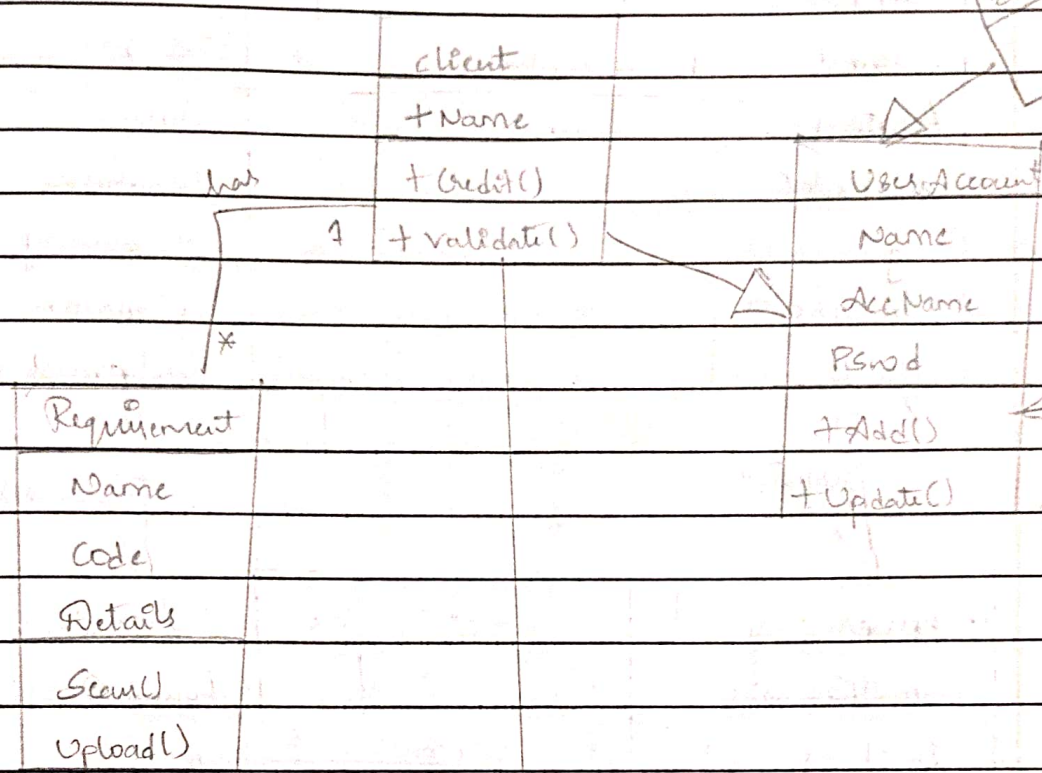 client
+ Name
+ Credit()
+ validate()
has
1
*
User Account
Name
Acc Name
Pswd
+ Add()
+ Update()
Requirement
Name
Code
Details
Scan()
Upload()